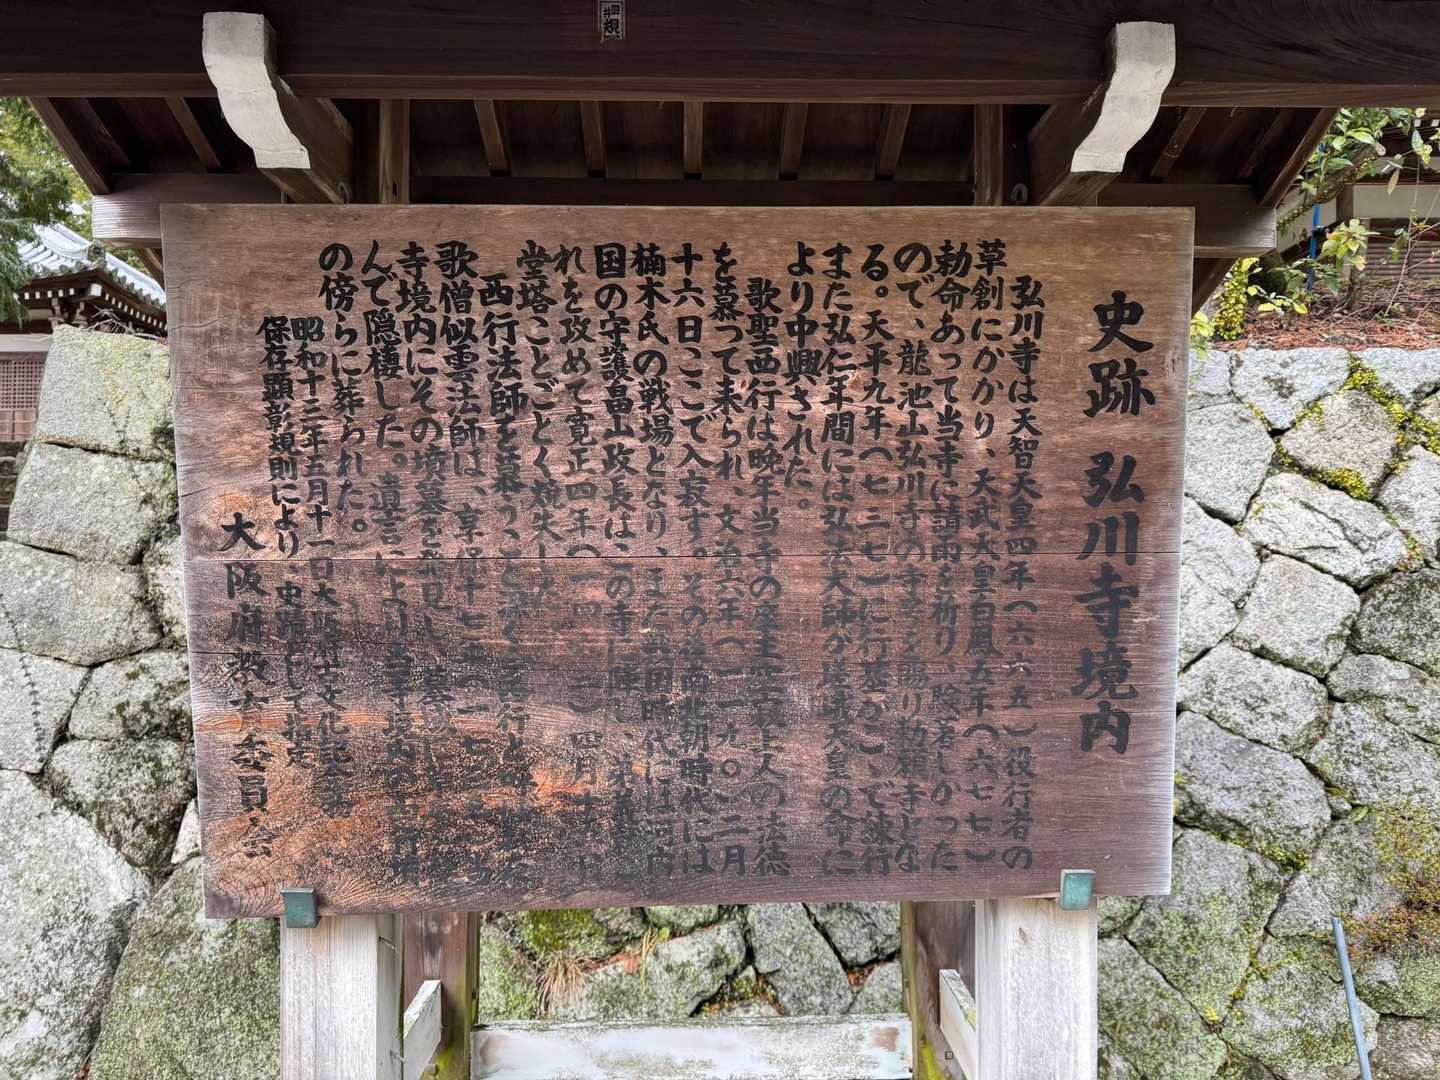 史跡 弘川寺境内
弘川寺は天智天皇四年（六六五）役行者の
草創にかかり、天武天皇白鳳五年（六七七）
勅命あって当寺に請雨を祈り、験著しかった
ので、龍池山弘川寺の寺号を賜り勅願寺とな
る。天平九年（七三七）に行基がここで練行
また弘仁年間には弘法大師が嵯峨天皇の命に
より中興された。
歌聖西行は晩年当寺の座主空寂上人の法徳
を慕って来られ、文治六年（一一九〇）二月
十六日ここで入寂す。その後南北朝時代には
楠木氏の戦場となり、また戦国時代には河内
国の守護畠山政長はこの寺に陣し、弟義就こ
れを攻めて寛正四年（一四六三）四月十五日
堂塔ことごとく焼失した
西行法師を慕うこと深く
歌僧似雲法師は、享保十七年（一七三二）当
寺境内にその墳墓を発見し、
んで隠棲した。遺言により当寺境内の西行墳
の傍らに葬られた。
昭和十三年五月十一日大阪府古文化記念物
保存顕彰規則により、史蹟として指定
大阪府教育委員会